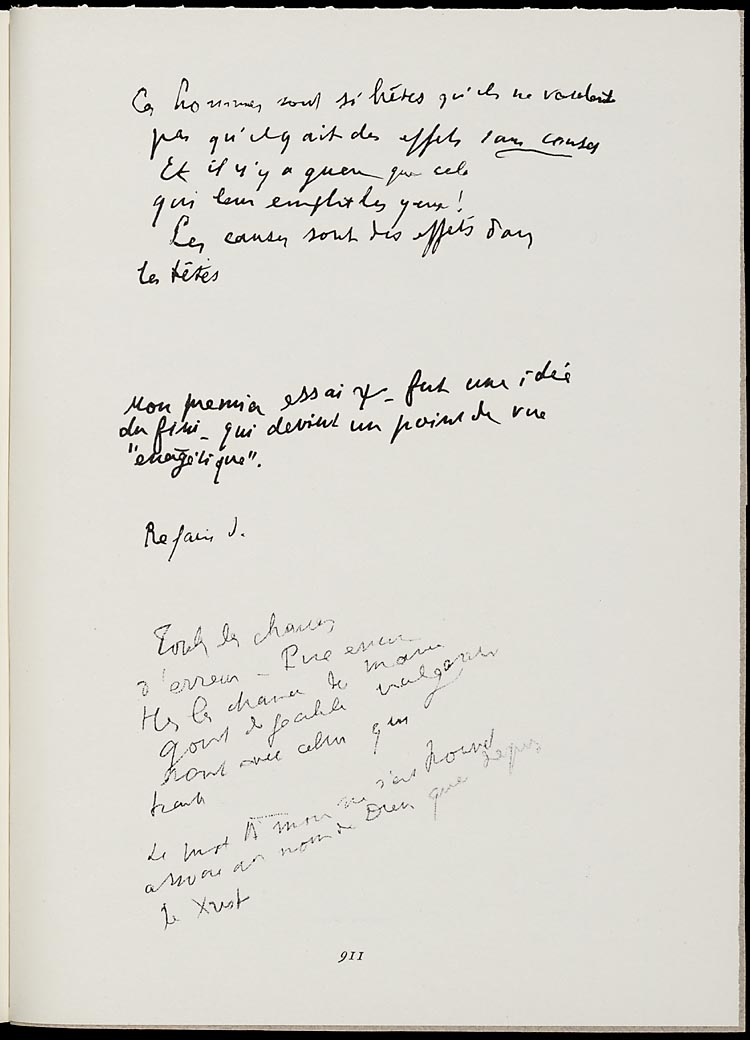 Ces hommes sont si bêtes qu'ils ne veulent
pas qu'il y ait des effets sans causes
Et il n'y a guère que cela
qui leur emplit les yeux !
Les causes sont des effets dans
les têtes
Mon premier essai ψ – fut une idée
du fini – qui devient un point de vue
"énergétique".
Refaire J.
Toutes les chances
d'erreur – Pire encore
Ttes les chances de mauvais
goût de facilité vulgaires
sont avec celui qui
Le mot Amour ne s'est trouvé
associé au nom de Dieu que depuis
le Xrist
911